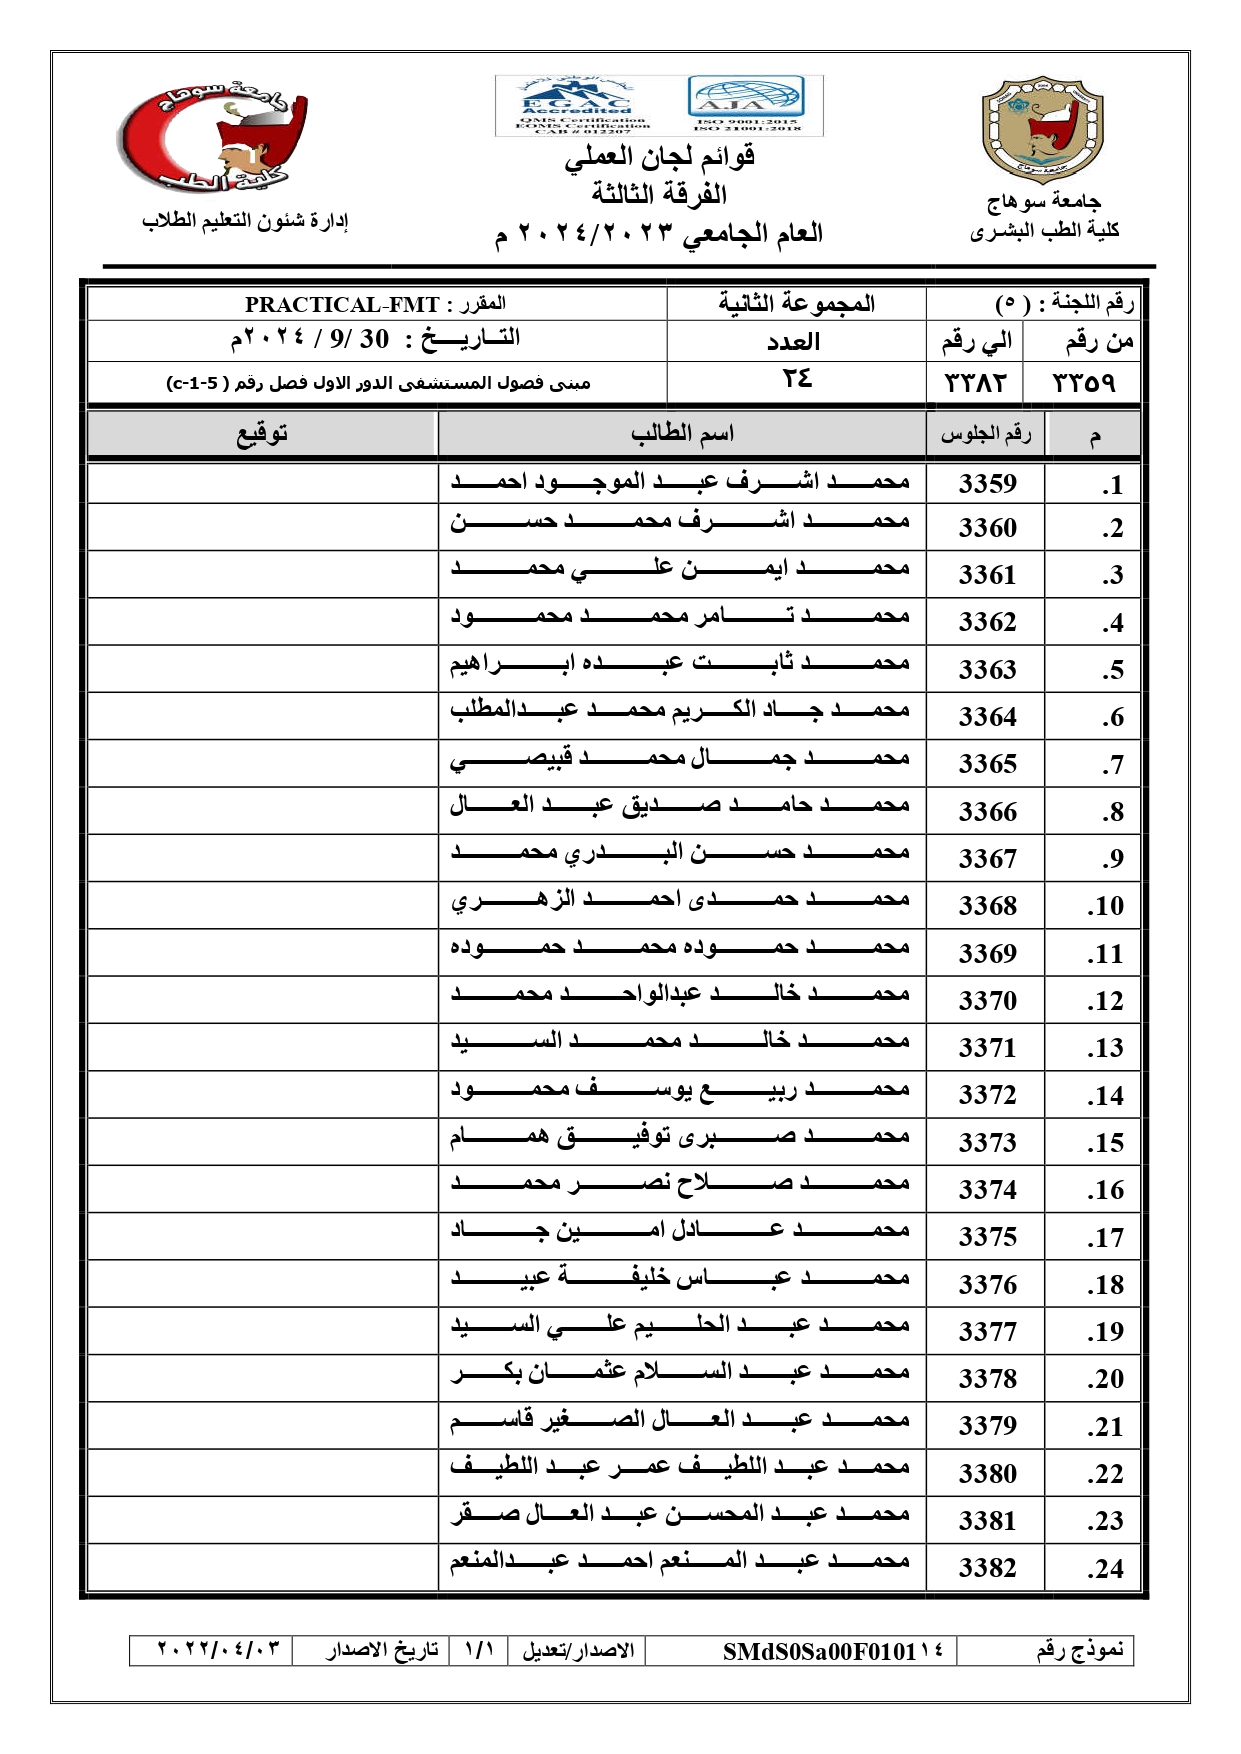 جامعة سوهاج
كلية الطب البشرى
EGAC
Accredited
QMS Certification
EOMS Certification
CAB # 012207
AJA
ISO 9001:2015
ISO 21001:2018
قوائم لجان العملي
الفرقة الثالثة
العام الجامعي ٢٠٢٤/٢٠٢٣ م
جامعة سوهاج
كلية الطب
إدارة شئون التعليم الطلاب
رقم اللجنة : ( ٥) المجموعة الثانية المقرر : PRACTICAL-FMT
من رقم الي رقم العدد التاريخ : 30 /9 / ٢٠٢٤م
٣٣٥٩ ٣٣٨٢ ٢٤ مبنى فصول المستشفى الدور الاول فصل رقم ( c-1-5)
م رقم الجلوس اسم الطالب توقيع
1. 3359 محمد اشرف عبد الموجود احمد
2. 3360 محمد اشرف محمد حسن
3. 3361 محمد ايمن علي محمد
4. 3362 محمد تامر محمد محمود
5. 3363 محمد ثابت عبده ابراهيم
6. 3364 محمد جاد الكريم محمد عبدالمطلب
7. 3365 محمد جمال محمد قبيصي
8. 3366 محمد حامد صديق عبد العال
9. 3367 محمد حسن البدري محمد
10. 3368 محمد حمدى احمد الزهري
11. 3369 محمد حموده محمد حموده
12. 3370 محمد خالد عبدالواحد محمد
13. 3371 محمد خالد محمد السيد
14. 3372 محمد ربيع يوسف محمود
15. 3373 محمد صبرى توفيق همام
16. 3374 محمد صلاح نصر محمد
17. 3375 محمد عادل امين جاد
18. 3376 محمد عباس خليفة عبيد
19. 3377 محمد عبد الحليم علي السيد
20. 3378 محمد عبد السلام عثمان بكر
21. 3379 محمد عبد العال الصغير قاسم
22. 3380 محمد عبد اللطيف عمر عبد اللطيف
23. 3381 محمد عبد المحسن عبد العال صقر
24. 3382 محمد عبد المنعم احمد عبدالمنعم
نموذج رقم SMdS0Sa00F0101١٤ الاصدار/تعديل ١/١ تاريخ الاصدار ٢٠٢٢/٠٤/٠٣